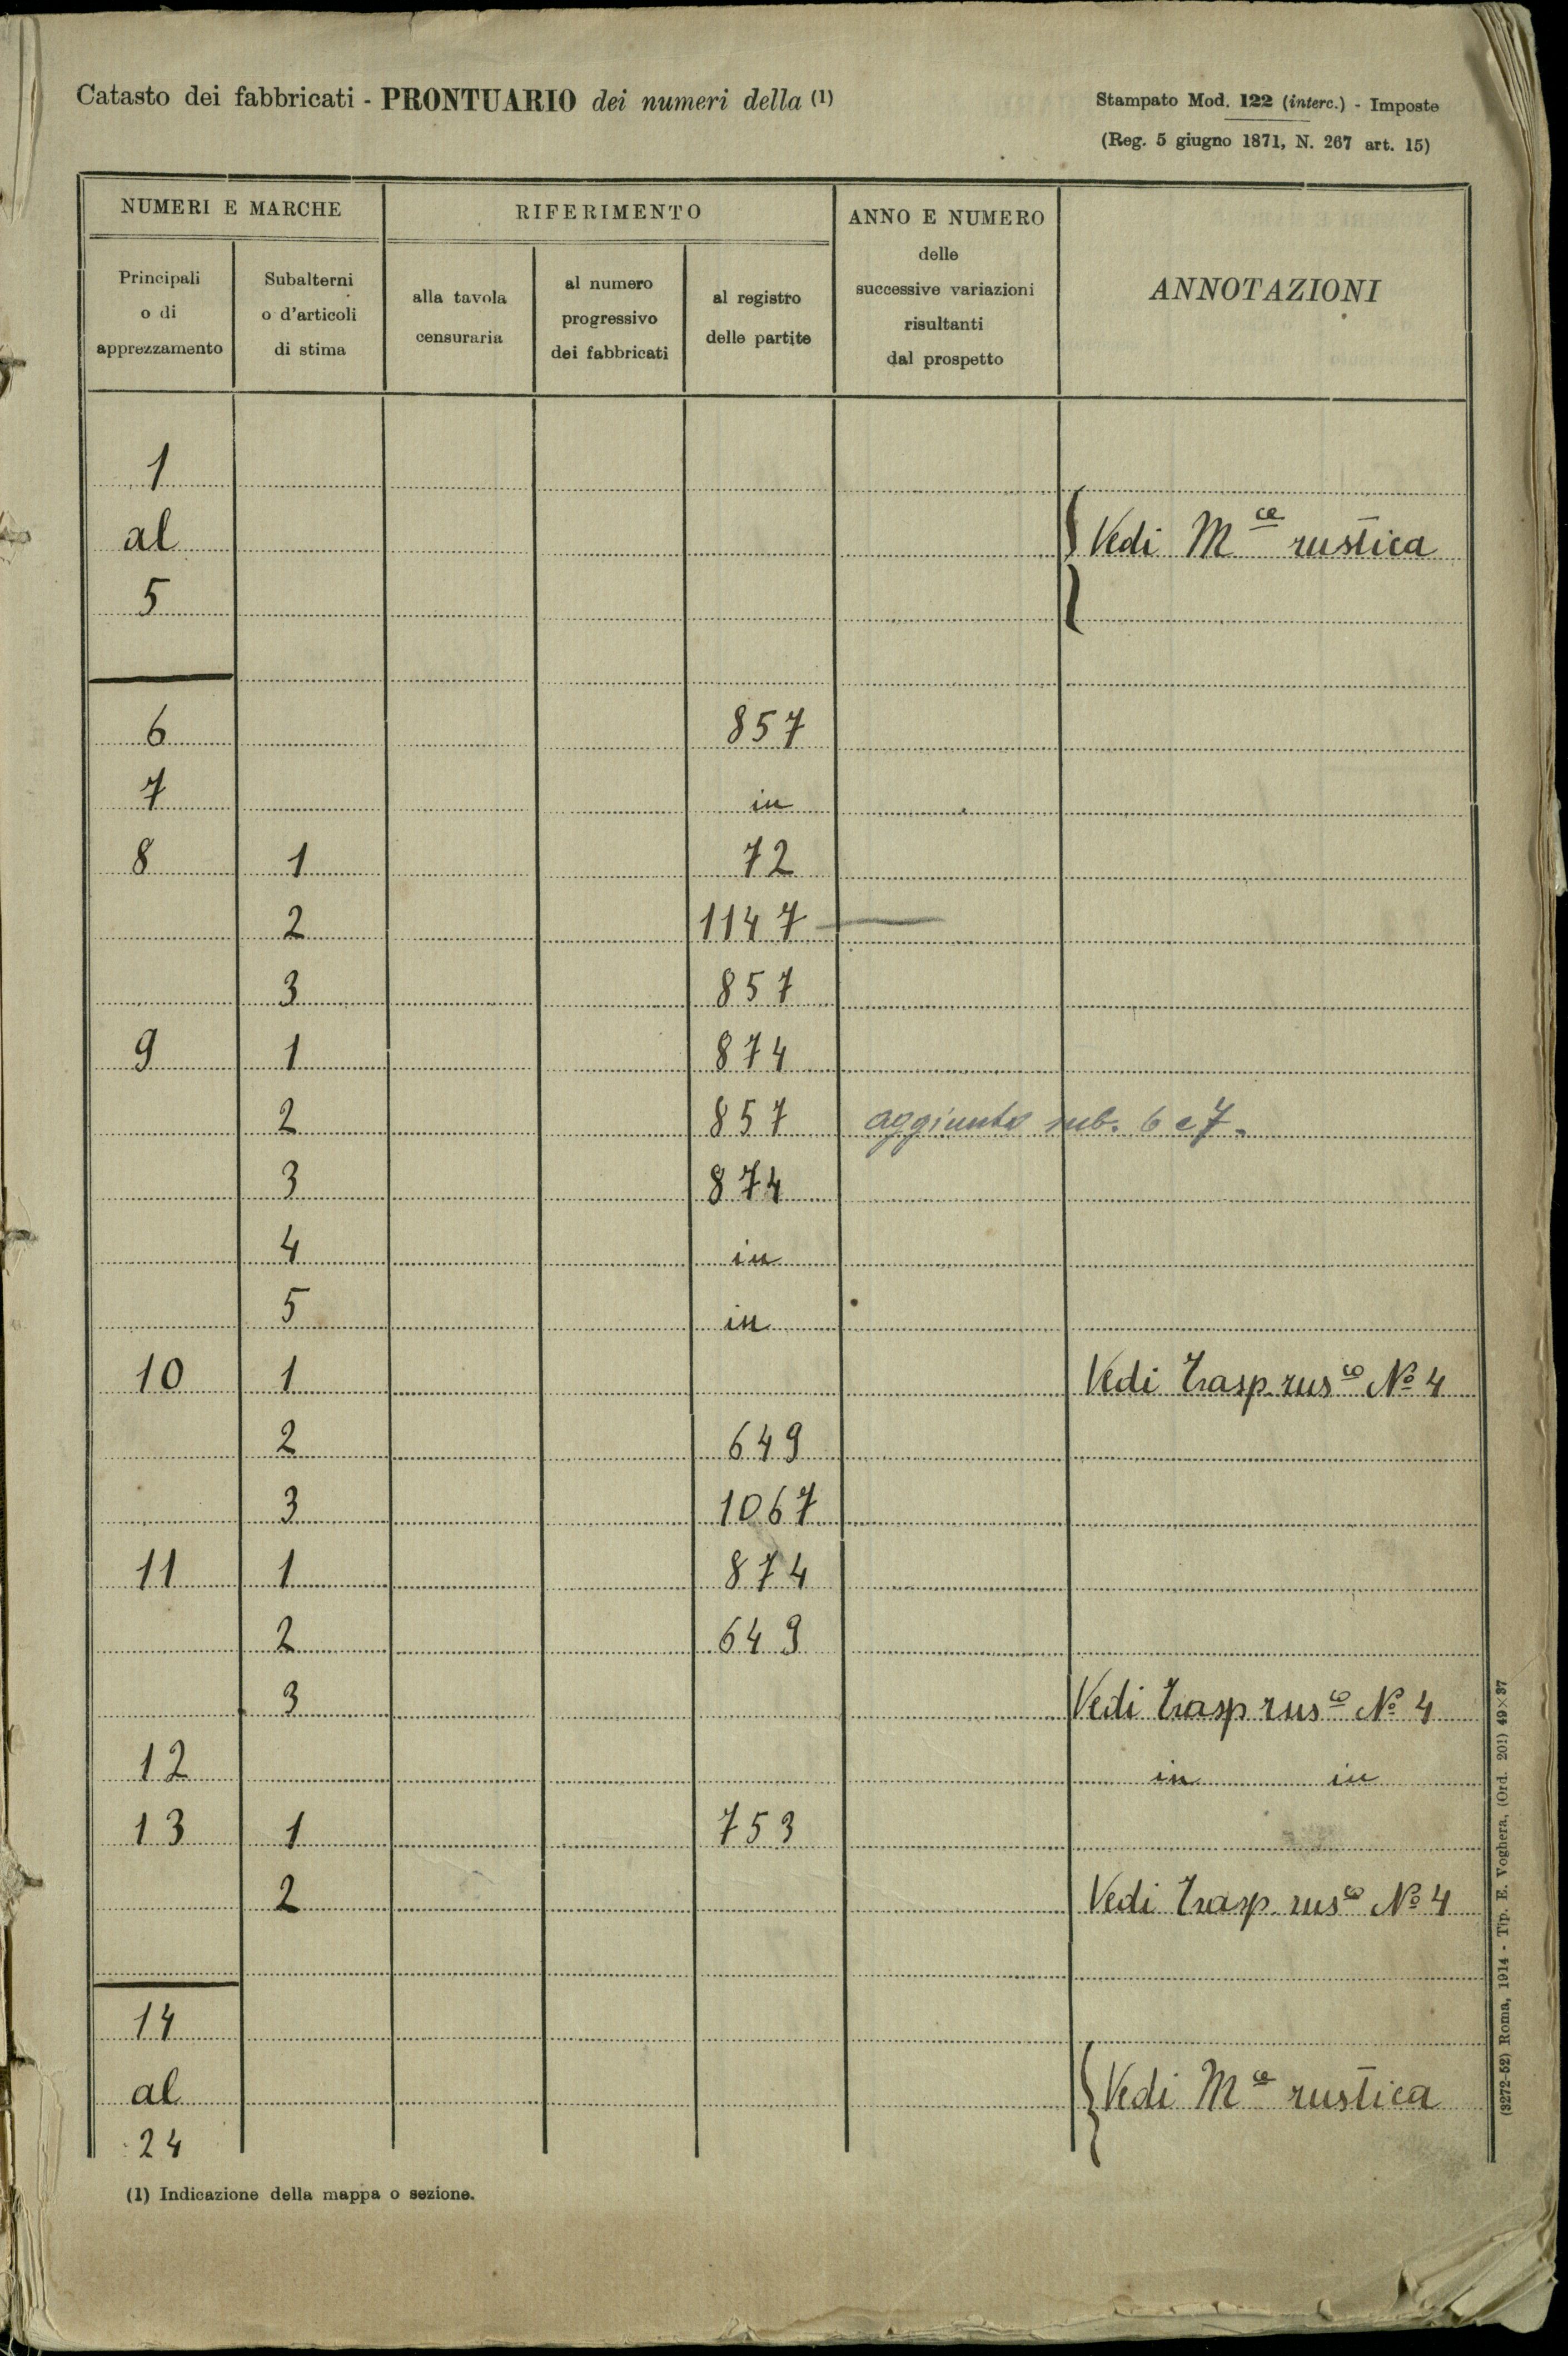 Catasto dei fabbricati - PRONTUARIO dei numeri della (1)
Stampato Mod. 122 (interc.) - Imposte
(Reg. 5 giugno 1871, N. 267 art. 15)
NUMERI E MARCHE
RIFERIMENTO
ANNO E NUMERO
delle
successive variazioni
risultanti
dal prospetto
ANNOTAZIONI
Principali
o di
apprezzamento
Subalterni
o d'articoli
di stima
alla tavola
censuraria
al numero
progressivo
dei fabbricati
al registro
delle partite
1
al Vedi M ce rustica
5
6 857
7 in
8 1 72
2 1147 —
3 857
9 1 874
2 857 aggiunto sub. 6 e 7.
3 874
4 in
5 in
10 1 Vedi trasp. rus co No 4
2 649
3 1067
11 1 874
2 649
3 Vedi trasp rus co No 4
12 in in
13 1 753
2 Vedi trasp. rus co No 4
14
al Vedi M ce rustica
24
(1) Indicazione della mappa o sezione.
(3272-52) Roma, 1914 - Tip. E. Voghera, (Ord. 201) 49×37